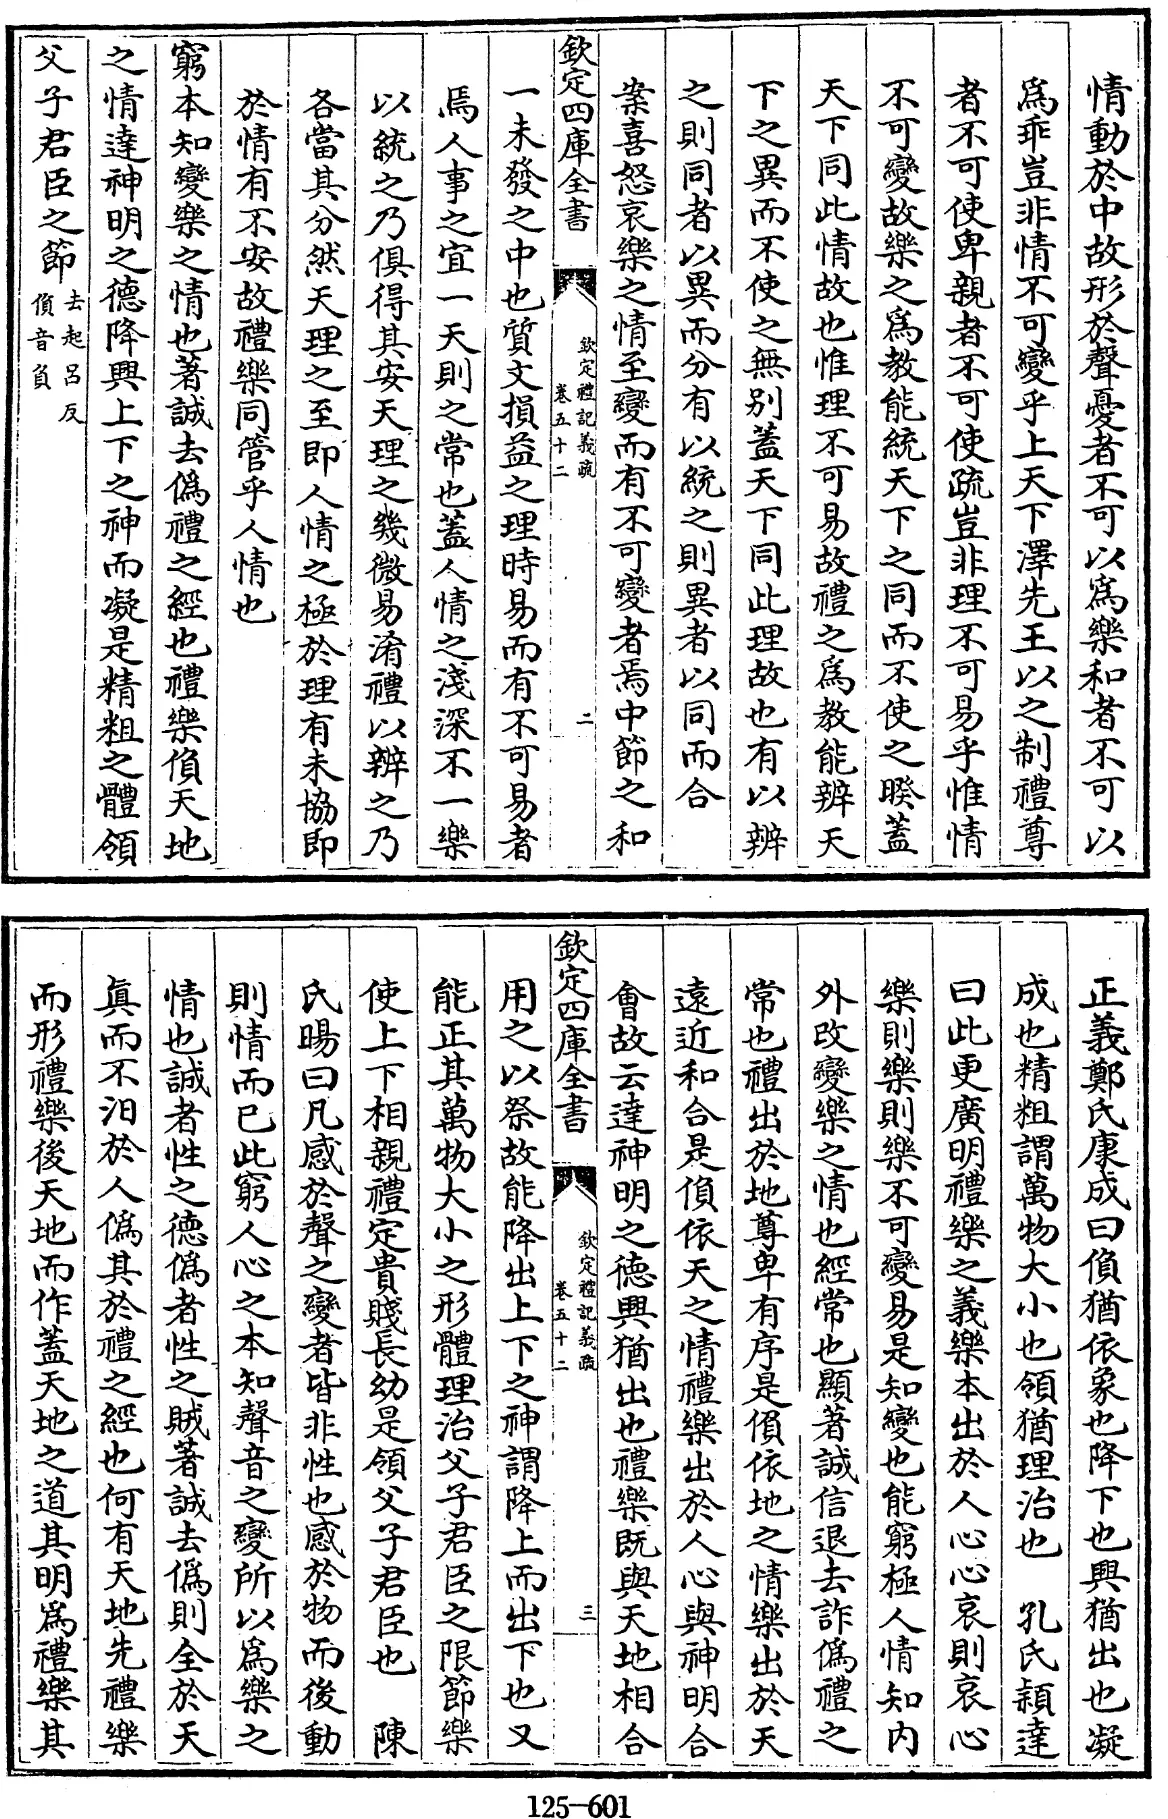 情動於中故形於聲憂者不可以爲樂和者不可以
爲乖豈非情不可變乎上天下澤先王以之制禮尊
者不可使卑親者不可使疏豈非理不可易乎惟情
不可變故樂之爲教能統天下之同而不使之暌蓋
天下同此情故也惟理不可易故禮之爲教能辨天
下之異而不使之無別蓋天下同此理故也有以辨
之則同者以異而分有以統之則異者以同而合
案喜怒哀樂之情至變而有不可變者焉中節之和
欽定四庫全書
欽定禮記義疏
卷五十二
二
一未發之中也質文損益之理時易而有不可易者
焉人事之宜一天則之常也蓋人情之淺深不一樂
以統之乃俱得其安天理之幾微易淆禮以辨之乃
各當其分然天理之至即人情之極於理有未協即
於情有不安故禮樂同管乎人情也
窮本知變樂之情也著誠去僞禮之經也禮樂偩天地
之情達神明之德降興上下之神而凝是精粗之體領
父子君臣之節去起呂反
偩音負
正義鄭氏康成曰偩猶依象也降下也興猶出也凝
成也精粗謂萬物大小也領猶理治也 孔氏穎達
曰此更廣明禮樂之義樂本出於人心心哀則哀心
樂則樂則樂不可變易是知變也能窮極人情知內
外改變樂之情也經常也顯著誠信退去詐僞禮之
常也禮出於地尊卑有序是偩依地之情樂出於天
遠近和合是偩依天之情禮樂出於人心與神明合
會故云達神明之德興猶出也禮樂既與天地相合
欽定四庫全書
欽定禮記義疏
卷五十二
三
用之以祭故能降出上下之神謂降上而出下也又
能正其萬物大小之形體理治父子君臣之限節樂
使上下相親禮定貴賤長幼是領父子君臣也 陳
氏暘曰凡感於聲之變者皆非性也感於物而後動
則情而已此窮人心之本知聲音之變所以爲樂之
情也誠者性之德僞者性之賊著誠去僞則全於天
眞而不汨於人僞其於禮之經也何有天地先禮樂
而形禮樂後天地而作蓋天地之道其明爲禮樂其
125-601